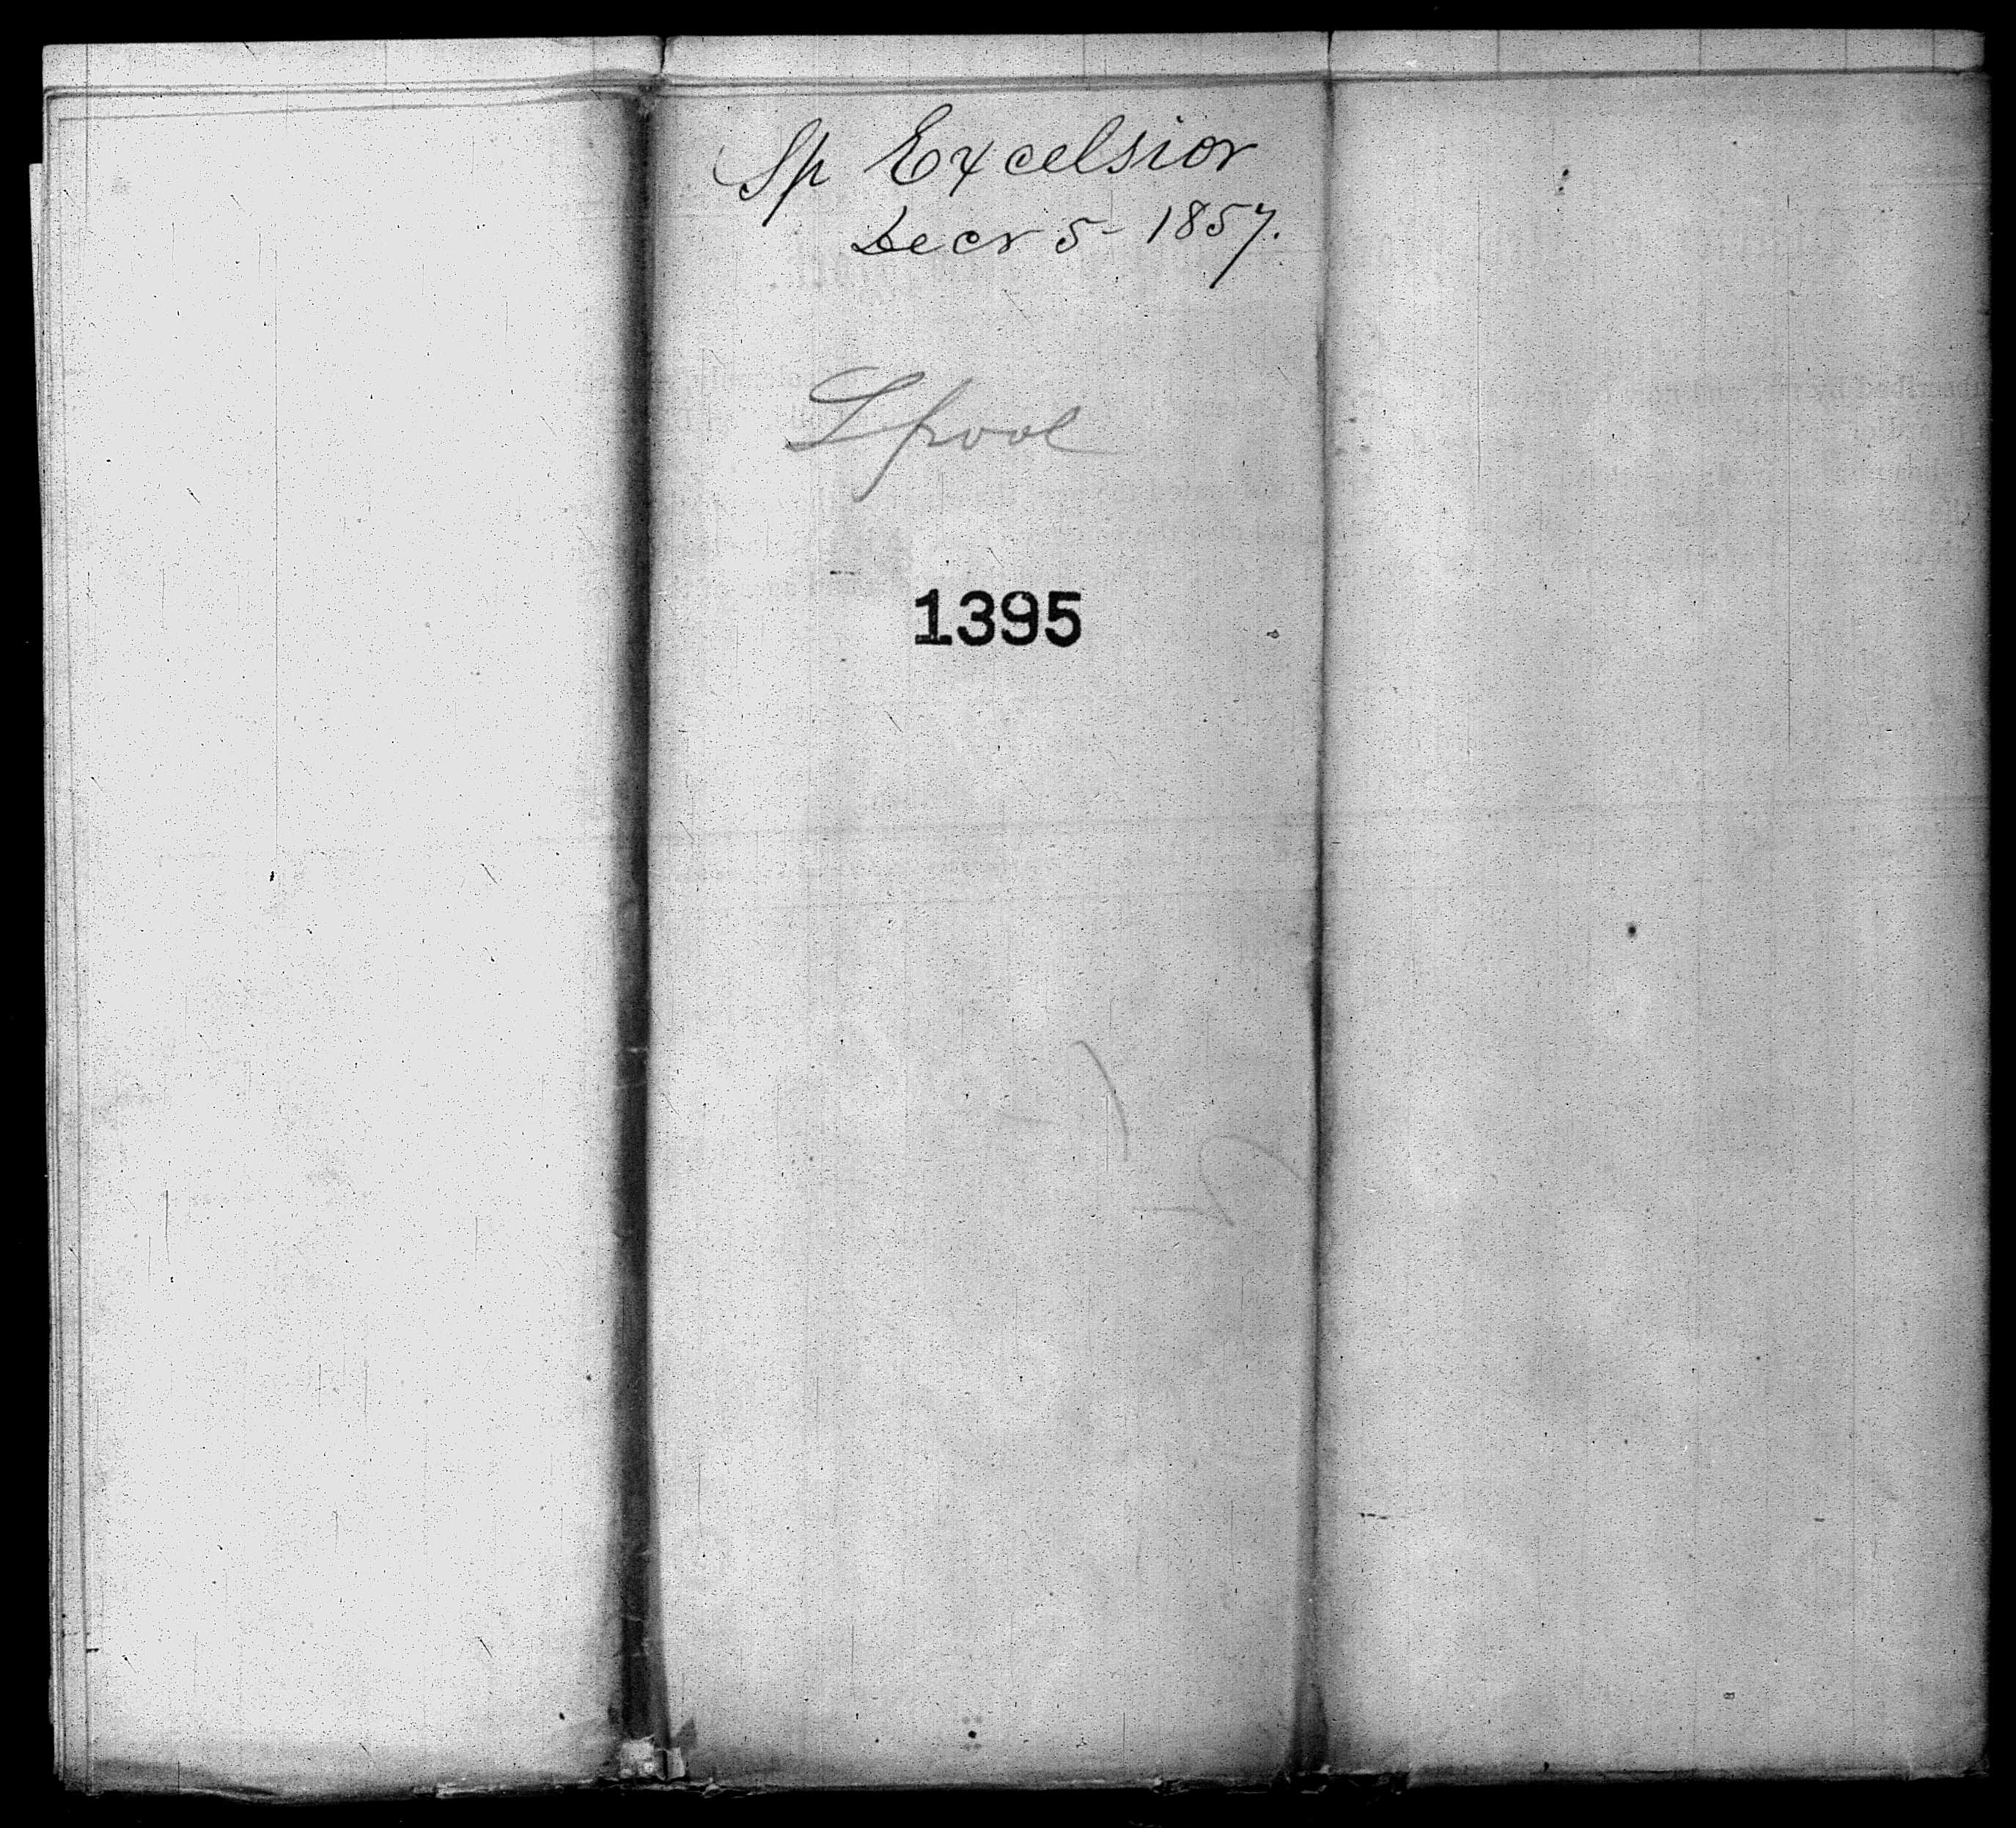 Sp Excelsior
Decr 5 - 1857.
Lpool
1395